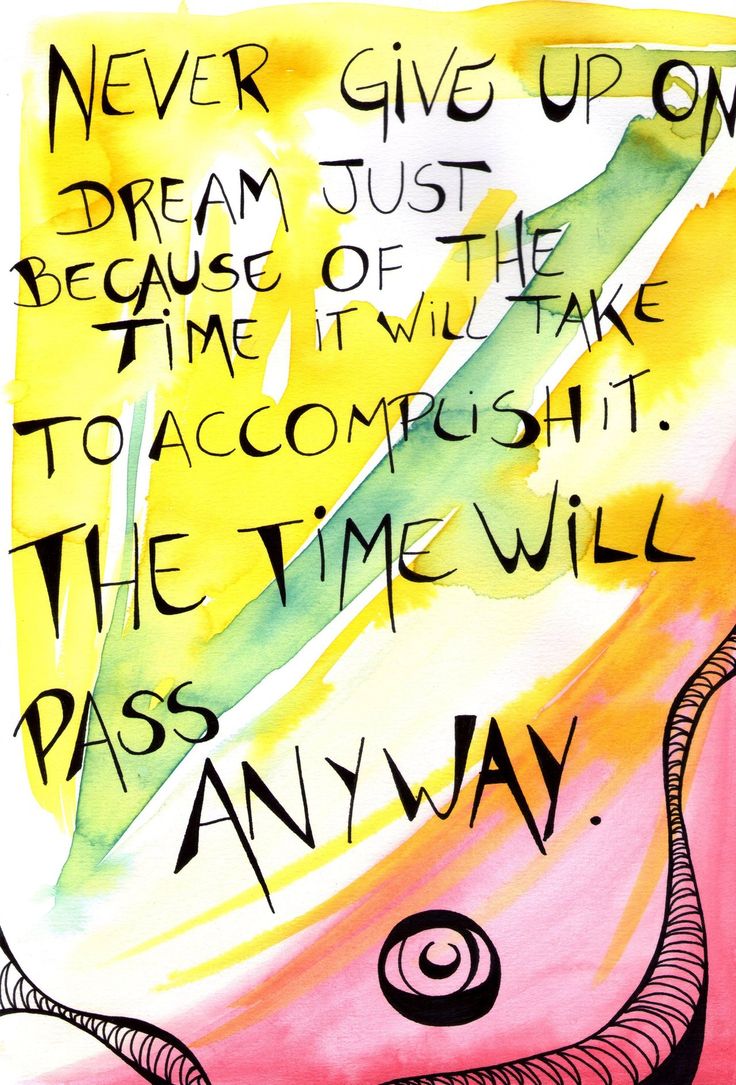 NEVER GIVE UP ON
DREAM JUST
BECAUSE OF THE
TIME IT WILL TAKE
TO ACCOMPLISH IT.
THE TIME WILL
PASS
ANYWAY.